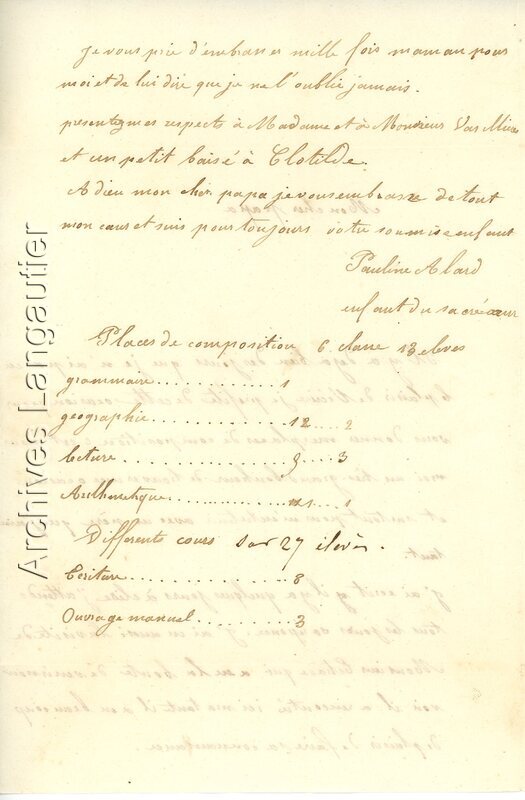 je vous prie d'embrasser mille fois maman pour
moi et de lui dire que je ne l'oublie jamais.
presentez mes respects à Madame et à Monsieur
et un petit baisé à Clotilde.
Adieu mon cher papa je vous embrasse de tout
mon cœur et suis pour toujours votre soumise enfant
Pauline Alard
enfant du sacré cœur
Places de composition 6. classe 13 eleves
grammaire............1
géographie............12....2
lecture............3....3
Arithmetique............1
Differents cours sur 27 élevès.
Ecriture............8
Ouvrage manuel............3
Archives Langautier